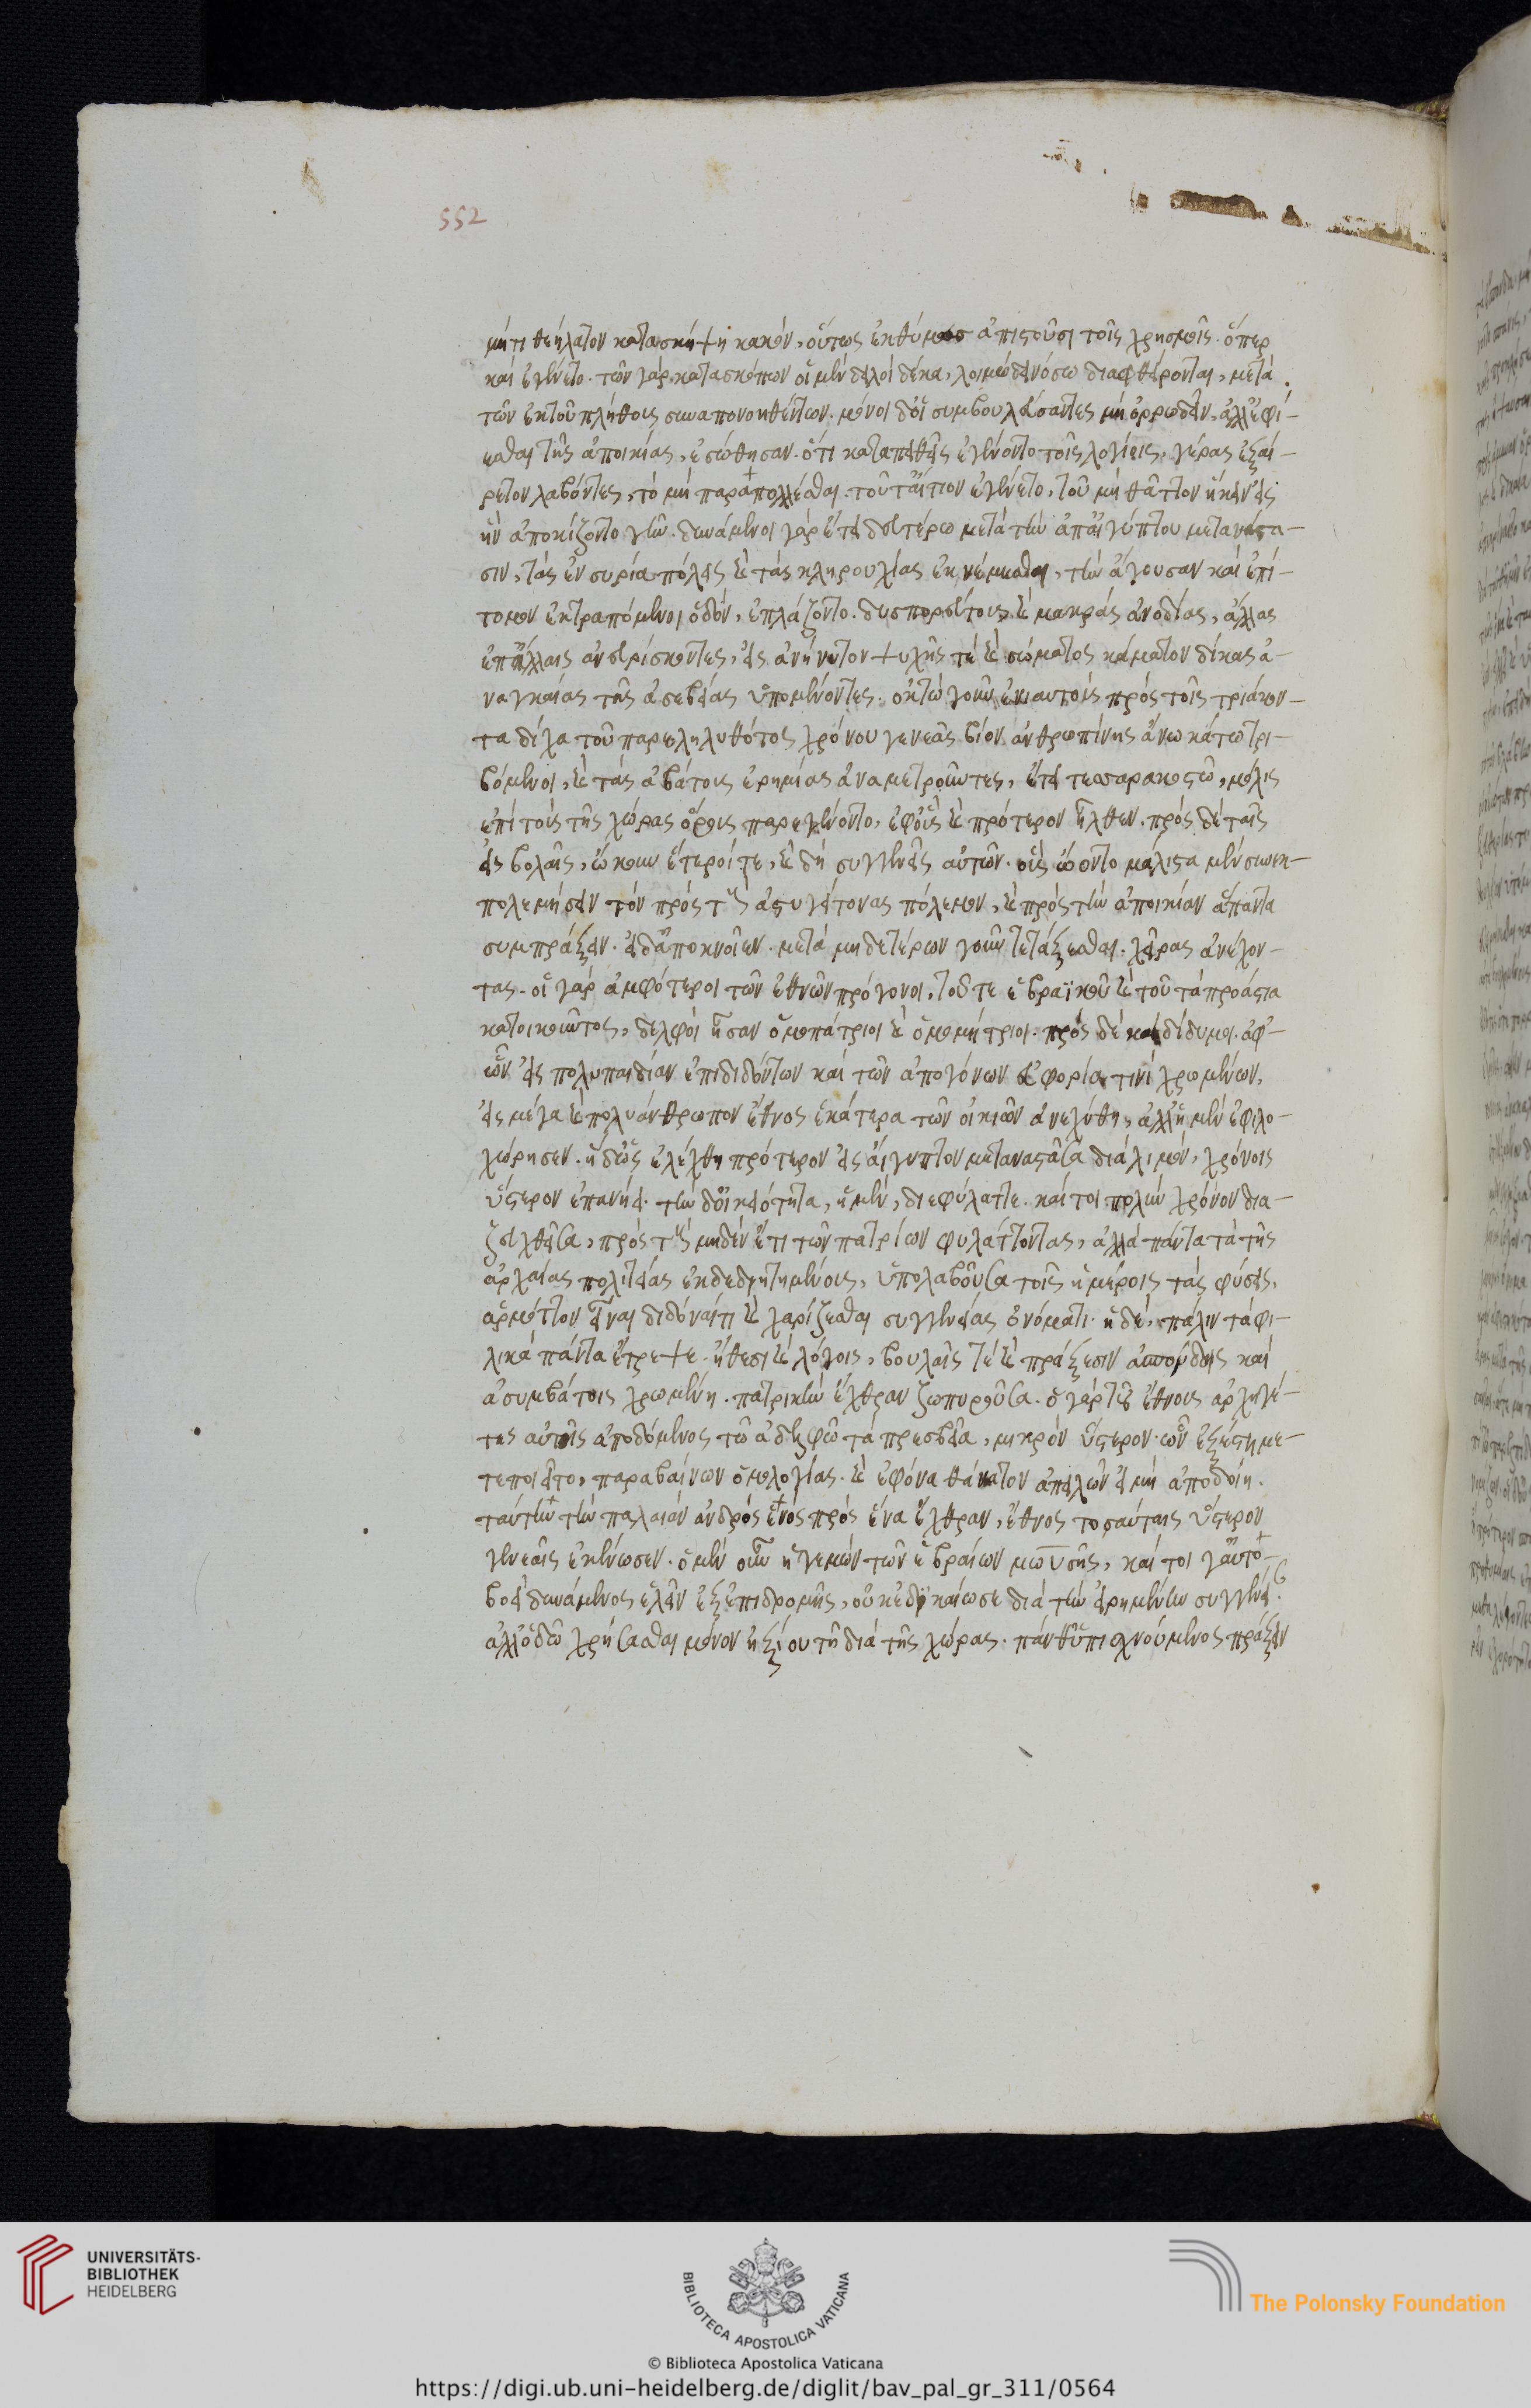 552
μή τι θεήλατον κατασκήψη κακόν, οὕτως ἐκθύμως ἀπιστοῦσι τοῖς χρησμοῖς. ὅπερ
καὶ ἐγένετο. τῶν γὰρ κατασκόπων οἱ μὲν δειλοὶ δέκα, λοιμώδει νόσω διαφθείρονται, μετὰ
τῶν ἐκ τοῦ πλήθους συναπονοηθέντων. μόνοι δ' οἱ συμβουλεύσαντες μὴ ὀρρωδεῖν, ἀλλ' ἐφί-
εσθαι τῆς ἀποικίας, ἐσώθησαν. ὅτι καταπειθεῖς ἐγένοντο τοῖς λογίοις, γέρας ἐξαί-
ρετον λαβόντες, τὸ μὴ παραπολλέσθαι. τοῦτ' αἴτιον ἐγένετο, τοῦ μὴ θᾶττον ἥκειν εἰς
ἣν ἀποκίζοντο γῆν. δυνάμενοι γὰρ ἔτει δευτέρω μετὰ τὴν ἀπ' αἰγύπτου μετανάστα-
σιν, τὰς ἐν συρία πόλεις καὶ τὰς κληρουχίας ἐκνέμεσθαι, τὴν ἄγουσαν καὶ ἐπί-
τομον ἐκτραπόμενοι ὁδόν, ἐπλάζοντο. δυσπορεύτους καὶ μακρὰς ἀνοδίας, ἄλλας
ἐπ' ἄλλαις ἀνευρίσκοντες, εἰς ἀνήνυτον ψυχῆς τὲ καὶ σώματος κάματον δίκας ἀ-
ναγκαίας τῆς ἀσεβείας ὑπομένοντες. ὀκτὼ γοῦν ἐνιαυτοὺς πρὸς τοῖς τριάκον-
τα δίχα τοῦ παρεληλυθότος χρόνου γενεᾶς βίον ἀνθρωπίνης ἄνω κάτω τρι-
βόμενοι, καὶ τὰς ἀβάτους ἐρημίας ἀναμετροῦντες, ἔτει τεσσαρακοστῶ, μόλις
ἐπὶ τοὺς τῆς χώρας ὅρους παρεγένοντο, ἐφ' οὓς καὶ πρότερον ἦλθεν. πρὸς δὲ ταῖς
εἰσβολαῖς, ὤκουν ἕτεροί τε, καὶ δὴ συγγενεῖς αὐτῶν. οὓς ὤοντο μάλιστα μὲν συνεκ-
πολεμήσειν τὸν πρὸς τοὺς ἀστυγείτονας πόλεμον, καὶ πρὸς τὴν ἀποικίαν ἅπαντα
συμπράξειν. εἰ δ' ἀποκνοῖεν. μετὰ μηδετέρων γοῦν τετάξεσθαι. χεῖρας ἀνέχον-
τας. οἱ γὰρ ἀμφότεροι τῶν ἐθνῶν πρόγονοι, τοῦ τε ἑβραϊκοῦ καὶ τοῦ τὰ προάστια
κατοικοῦντος, δελφοὶ ἦσαν ὁμοπάτριοι καὶ ὁμομήτριοι. πρὸς δὲ καὶ δίδυμοι. ἀφ'
ὧν εἰς πολυπαιδίαν ἐπιδιδόντων καὶ τῶν ἀπογόνων εὐφορία τινὶ χρωμένων,
εἰς μέγα καὶ πολυάνθρωπον ἔθνος ἑκάτερα τῶν οἰκιῶν ἀνεχύθη, ἀλλ' ἡ μὲν ἐφιλο-
χώρησεν. ἡ δ' ὡς ἐλέχθη πρότερον εἰς αἴγυπτον μεταναστᾶσα διὰ λιμόν, χρόνοις
ὕστερον ἐπανήει. τὴν δ' οἰκειότητα, ἡ μὲν, διεφύλαττε. καί τοι πολὺν χρόνον δια-
ζευχθεῖσα, πρὸς τοὺς μηδὲν ἔτι τῶν πατρίων φυλάττοντας, ἀλλὰ πάντα τὰ τῆς
ἀρχαίας πολιτείας ἐκδεδιητημένους, ὑπολαβοῦσα τοῖς ἡμέροις τὰς φύσεις,
ἁρμόττον εἶναι διδόναί τι καὶ χαρίζεσθαι συγγενείας ὀνόματι. ἡ δὲ, πάλιν τὰ φι-
λικὰ πάντα ἔτρεψε. ἤθεσι καὶ λόγοις, βουλαῖς τὲ καὶ πράξεσιν ἀσπόνδοις καὶ
ἀσυμβάτοις χρωμένη. πατρικὴν ἔχθραν ζωπυροῦσα. ὁ γὰρ τοῦ ἔθνους ἀρχηγέ-
της αὐτοῖς ἀποδόμενος τῶ ἀδελφῶ τὰ πρεσβεῖα, μικρὸν ὕστερον. ὧν ἐξέστη με-
τεποιεῖτο, παραβαίνων ὁμολογίας. καὶ ἐφόνα θάνατον ἀπειλῶν εἰ μὴ ἀποδοίη.
ταύτην τὴν παλαιὰν ἀνδρὸς ἑνὸς πρὸς ἕνα ἔχθραν, ἔθνος τοσαύταις ὕστερον
γενεαῖς ἐκαίνωσεν. ὁ μὲν οὖν ἡγεμὼν τῶν ἑβραίων μωϋσῆς, καί τοι γ' αὐτο-
βοεὶ δυνάμενος ἑλεῖν ἐξ ἐπιδρομῆς, οὐκ ἐδικαίωσε διὰ τὴν εἰρημένην συγγένειαν.
ἀλλ' ὁδῶ χρήσασθαι μόνον ἠξίου τῆ διὰ τῆς χώρας. πάνθ' ὑπισχνούμενος πράξειν
UNIVERSITÄTS-
BIBLIOTHEK
HEIDELBERG
BIBLIOTECA APOSTOLICA VATICANA
The Polonsky Foundation
© Biblioteca Apostolica Vaticana
https://digi.ub.uni-heidelberg.de/diglit/bav_pal_gr_311/0564